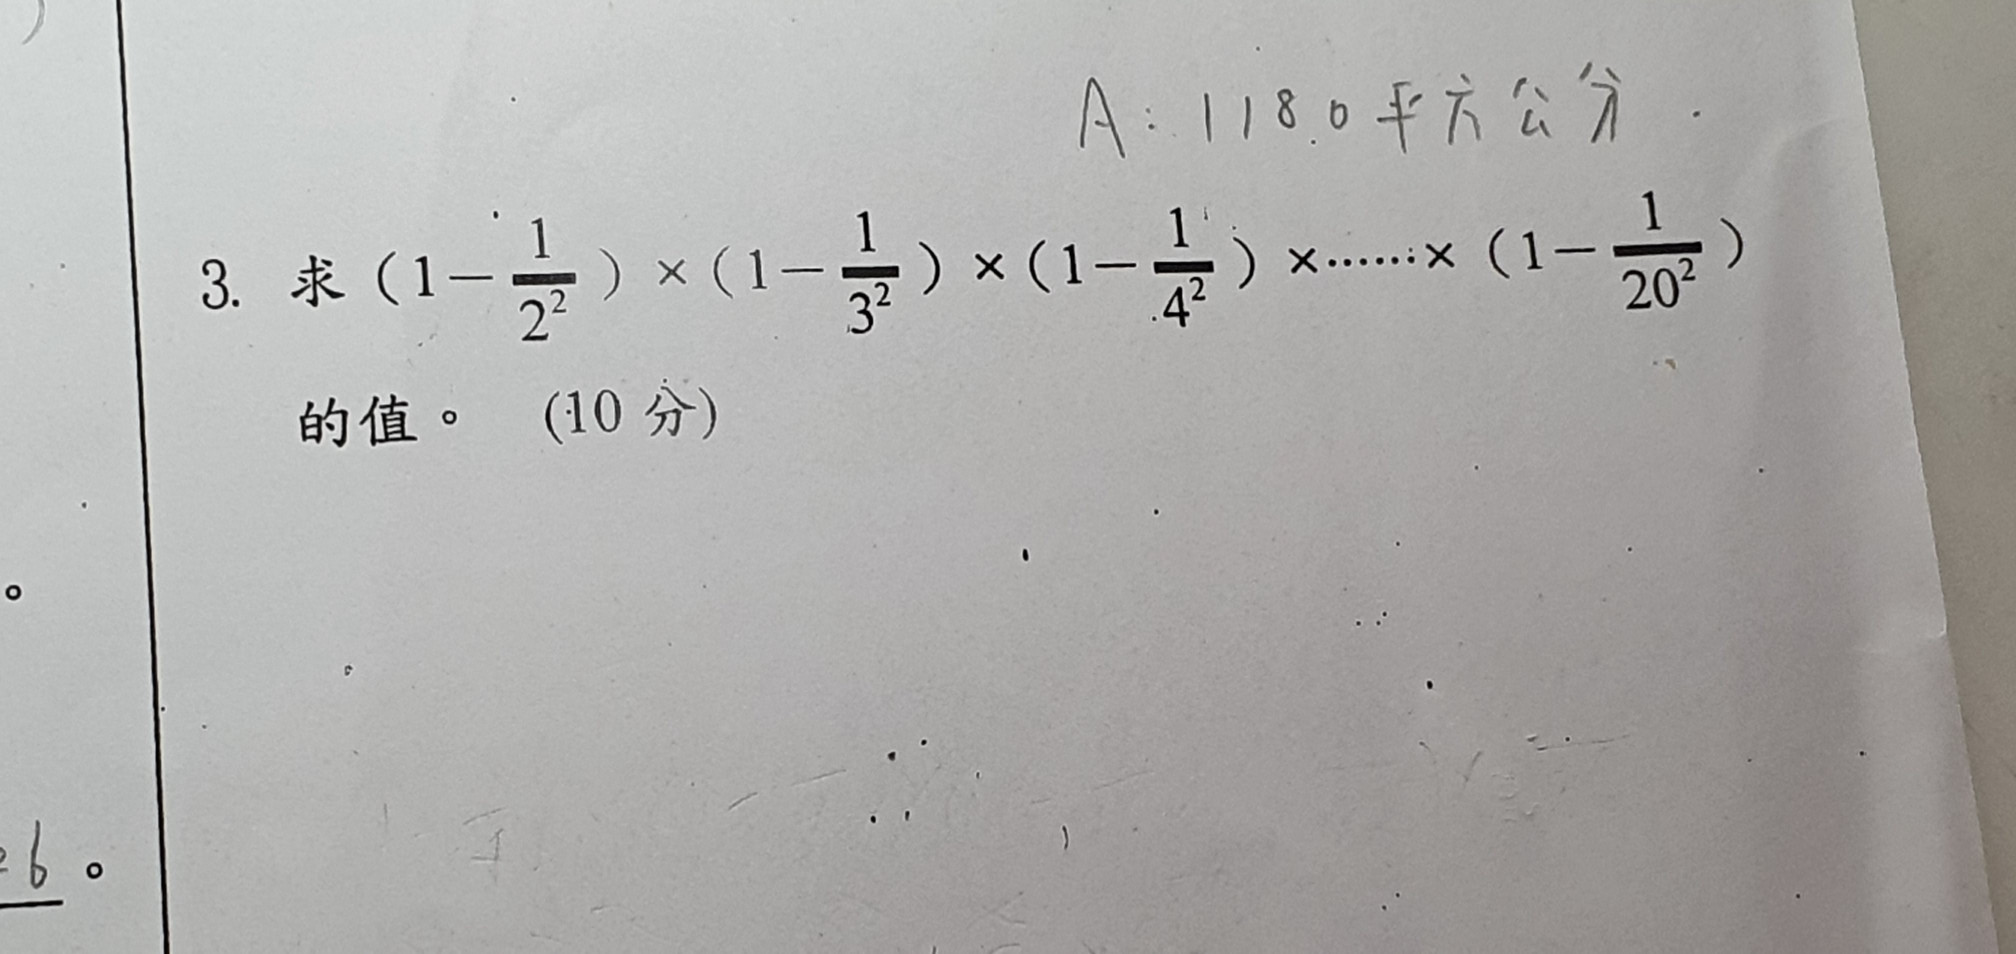 A：1180平方公分
3. 求（1－\frac{1}{2^2}）×（1－\frac{1}{3^2}）×（1－\frac{1}{4^2}）×……×（1－\frac{1}{20^2}）
的值。 (10 分)
。
6 。